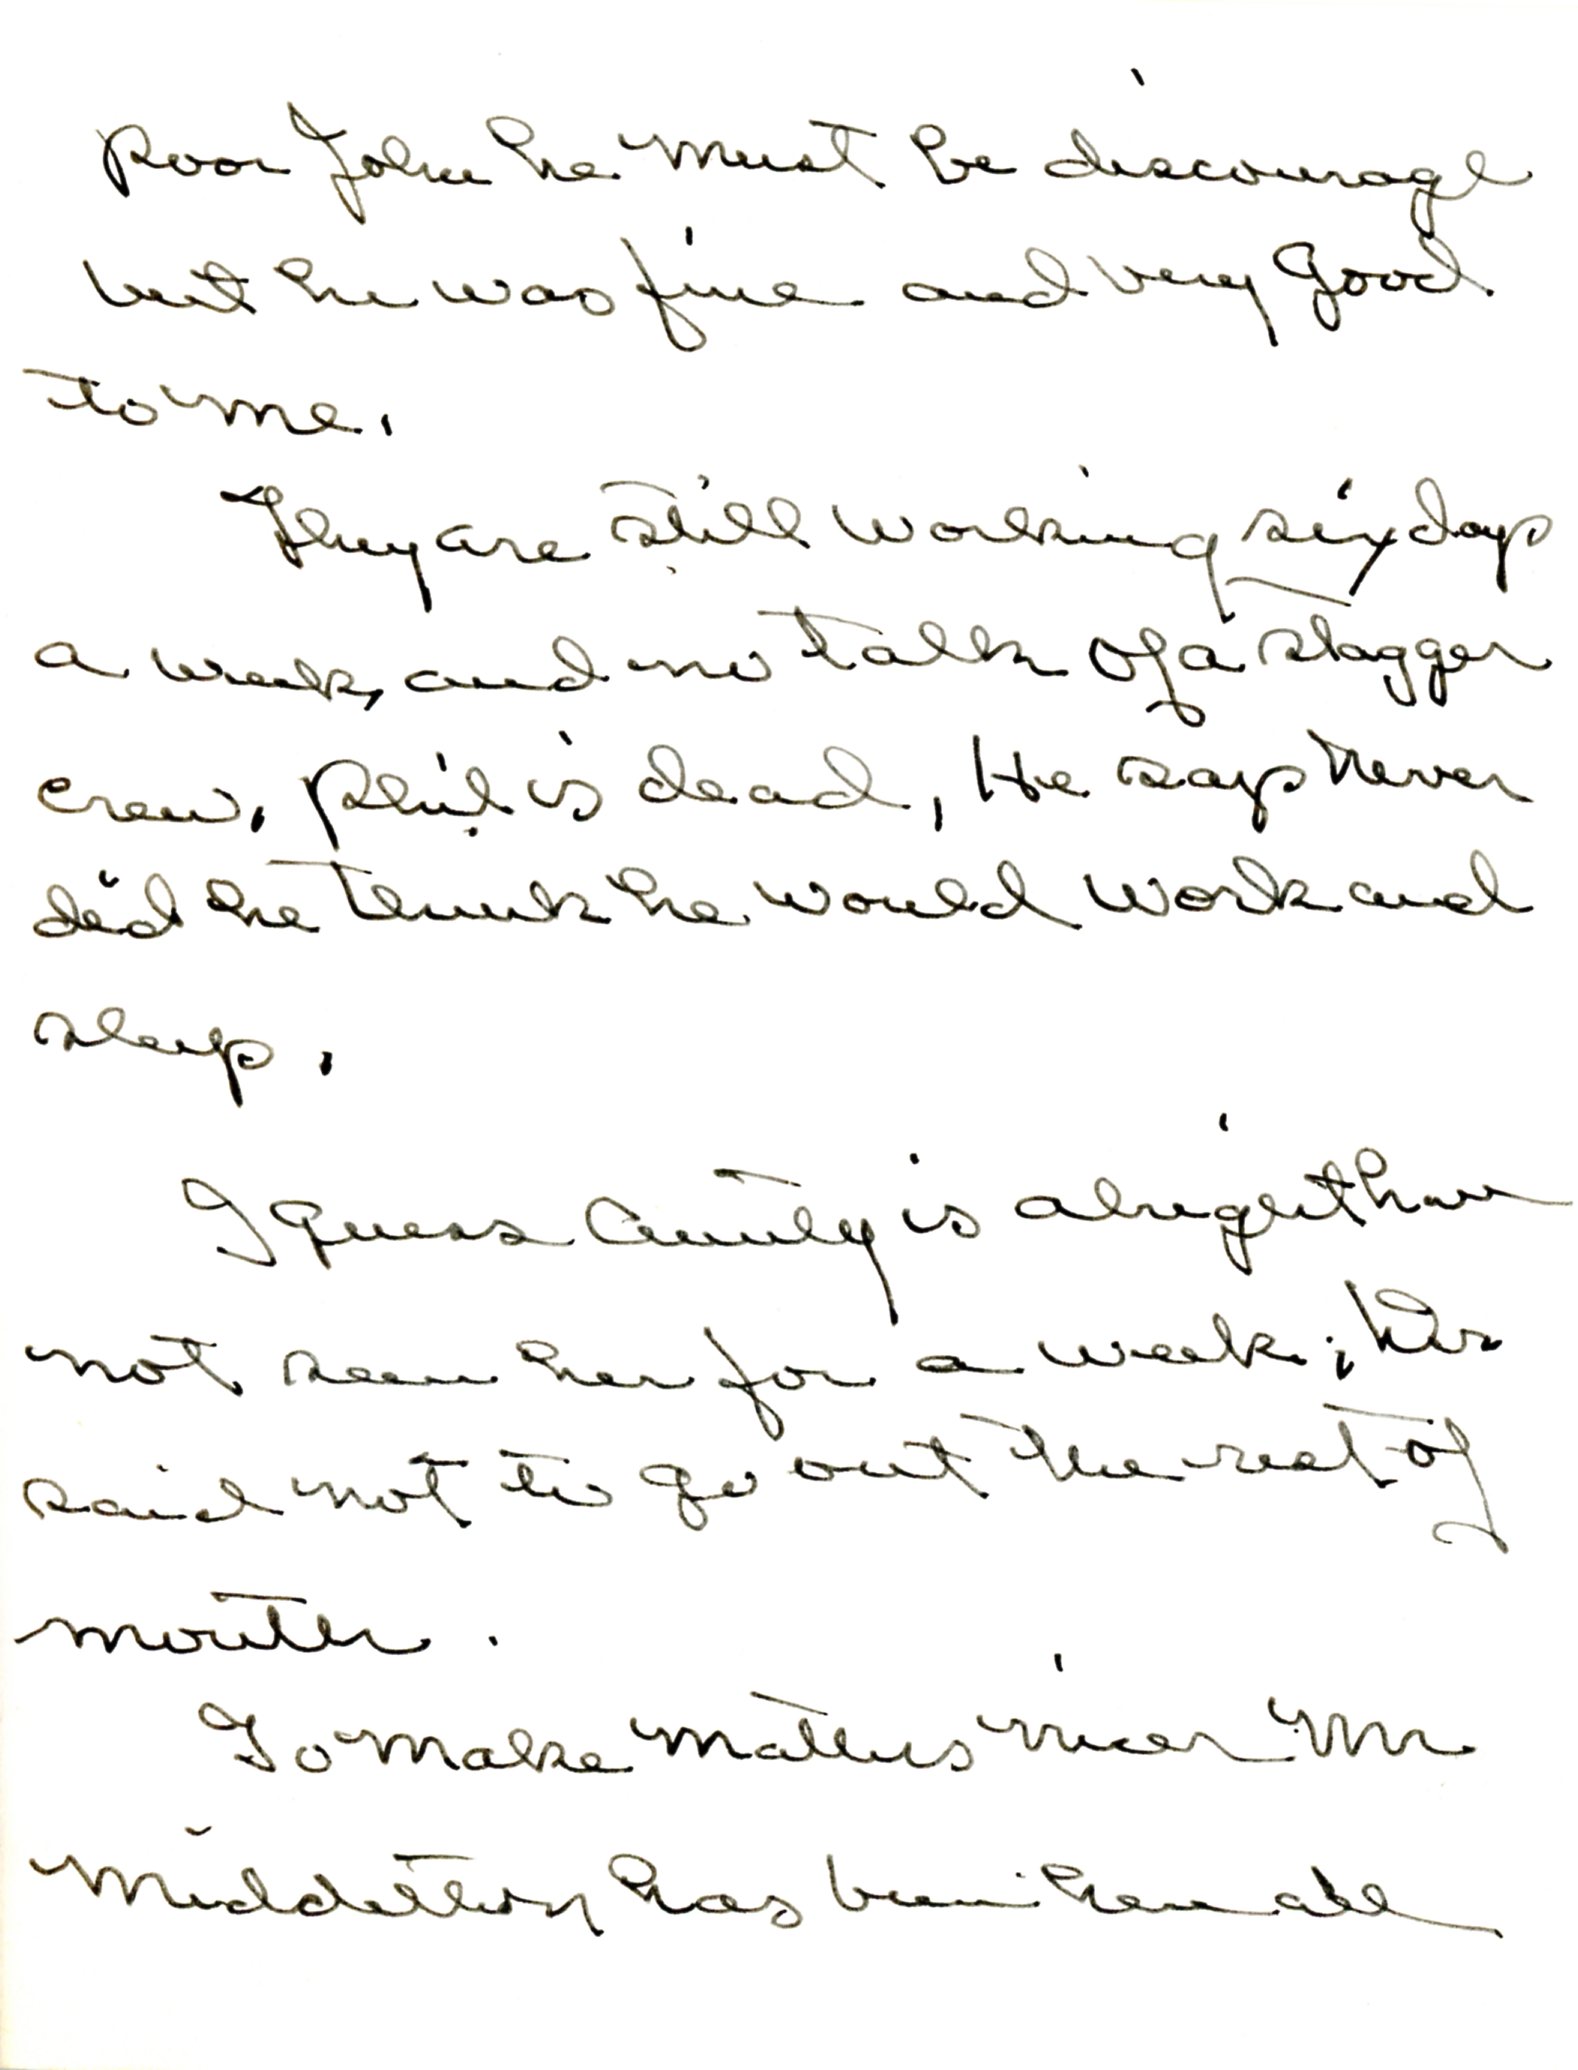 poor John he must be discourage
but he was fine and very good
to me.
They are still working six days
a week, and no talk of a stagger
crew. Phil is dead, He says never
did he think he would work and
sleep.
I guess Aunty is alright have
not seen her for a week;
said not to go out the rest of
month.
To make matters nicer Mr
Middleton has been here all